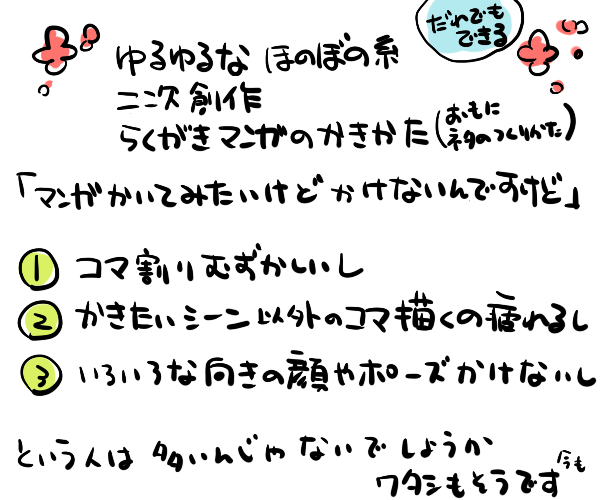 だれでも
できる
ゆるゆるな ほのぼの系
二次創作
らくがきマンガのかきかた(おもに
ネタのつくりかた)
「マンガかいてみたいけど かけないんですけど」
1 コマ割りむずかしいし
2 かきたいシーン以外のコマ描くの疲れるし
3 いろいろな向きの顔やポーズかけないし
という人は 多いんじゃ ないでしょうか
ワタシもそうです 今も